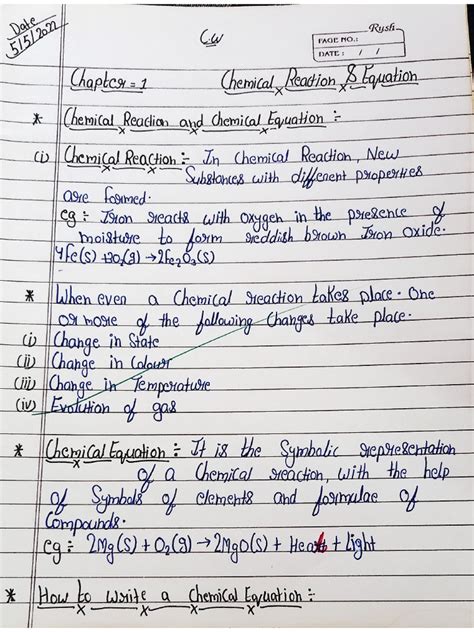 Date
5/5/2022
C.W
Rush
PAGE NO.:
DATE: / /
Chapter = 1 Chemical Reaction & Equation
* Chemical Reaction and Chemical Equation :-
(i) Chemical Reaction :- In Chemical Reaction, New
Substances with different properties
are formed.
eg :- Iron reacts with oxygen in the presence of
moisture to form reddish brown Iron oxide.
4Fe(s) + 3O₂(g) → 2Fe₂O₃(s)
* When even a Chemical reaction takes place. One
or more of the following Changes take place.
(i) Change in State
(ii) Change in Colour
(iii) Change in Temperature
(iv) Evolution of gas
* Chemical Equation :- It is the Symbolic representation
of a Chemical reaction, with the help
of Symbols of elements and formulae of
Compounds.
eg :- 2Mg(s) + O₂(g) → 2MgO(s) + Heat + Light
* How to write a Chemical Equation :-